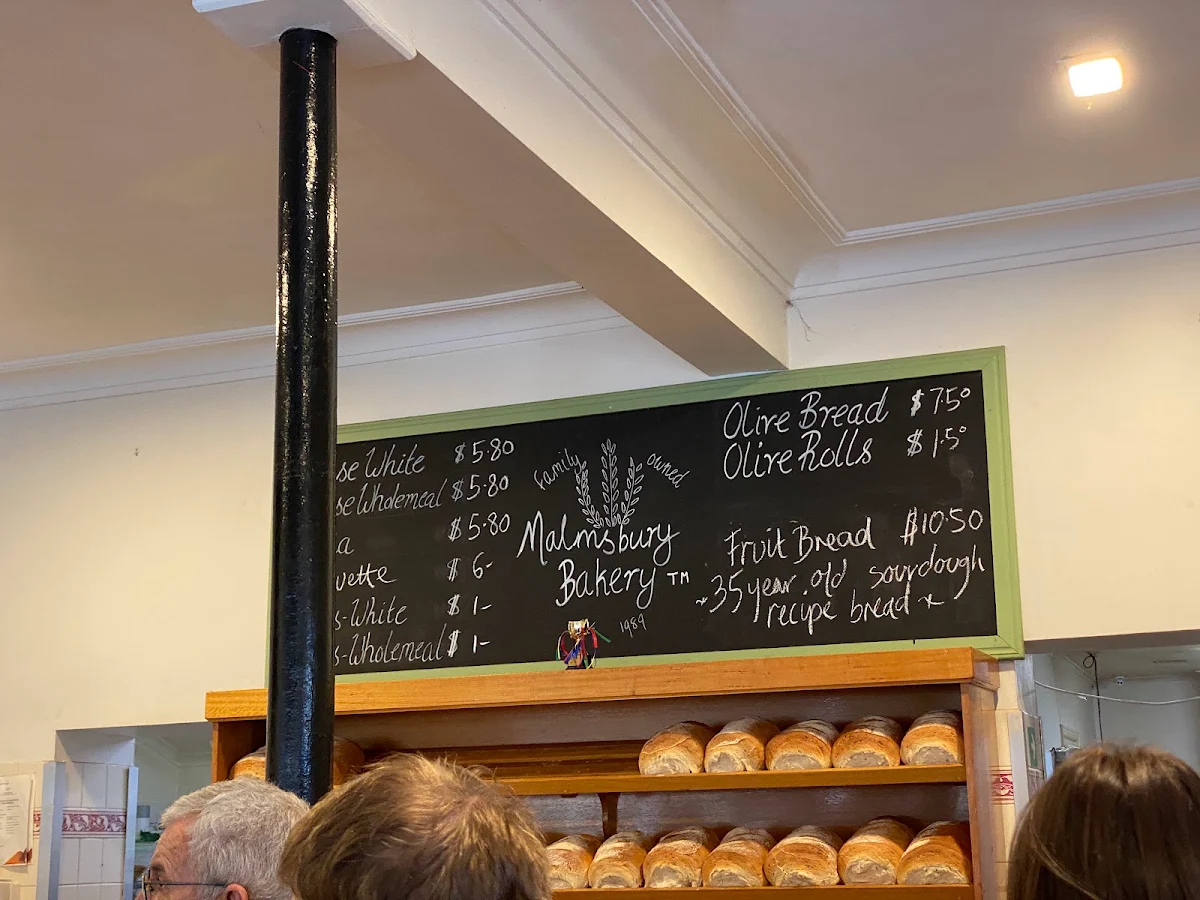 se White $5.80
se Wholemeal $5.80
a $5.80
uette $6-
s-White $1-
s-Wholemeal $1-
Family owned
Malmsbury
Bakery ™
1989
Olive Bread $7.50
Olive Rolls $1.50
Fruit Bread $10.50
~35 year old sourdough
recipe bread~